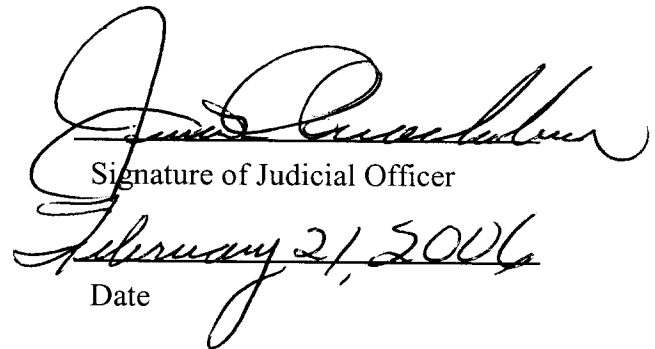 Signature of Judicial Officer
February 21, 2006
Date